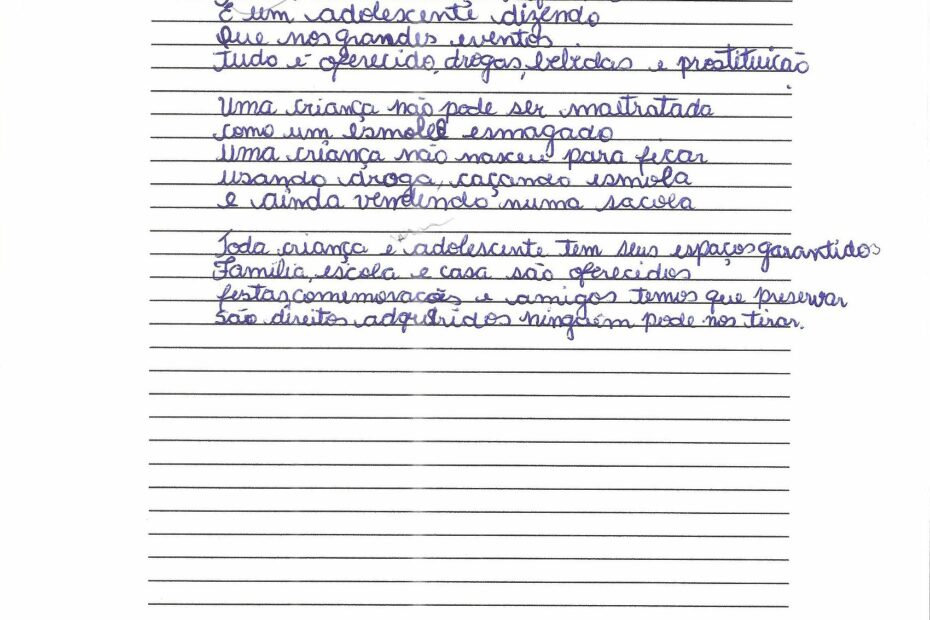 E um adolescente dizendo
Que nos grandes eventos
Tudo é oferecido, drogas, bebidas e prostituição
Uma criança não pode ser maltratada
como um esmole esmagado
Uma criança não nasceu para ficar
usando droga, caçando esmola
e ainda vendendo numa sacola
Toda criança e adolescente tem seus espaços garantidos
Família, escola e casa são oferecidos
festas, comemorações e amigos temos que preservar
São direitos adquiridos ninguém pode nos tirar.